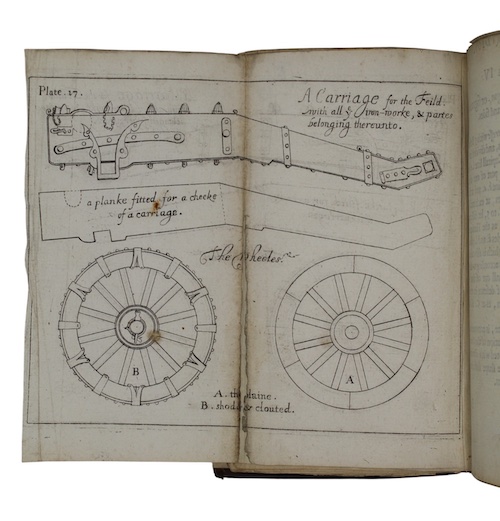 Plate. 17.
A Carriage for the Feild.
with all yͤ iron-worke, & partes
belonging thereunto.
a planke fitted for a cheeke
of a carriage.
The Wheeles.
B
A
A. the plaine.
B. shod & clouted.